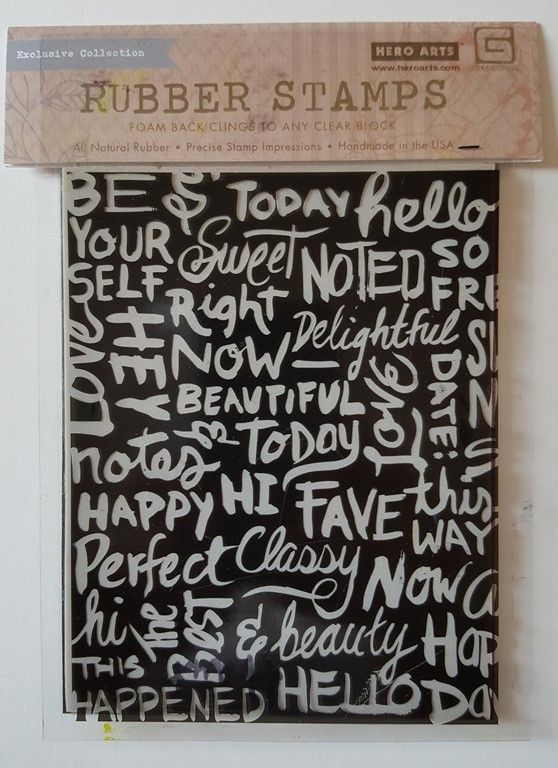 Exclusive Collection
HERO ARTS
www.heroarts.com
BASICGREY
RUBBER STAMPS
FOAM BACK CLINGS TO ANY CLEAR BLOCK
All Natural Rubber • Precise Stamp Impressions • Handmade in the USA
BE
YOUR
SELF
&
TODAY
hello
Sweet
NOTED
SO
FRE
Right
NOW
Delightful
LOVE
HEY
BEAUTIFUL
LOVE
DATE:
notes
TODAY
HAPPY
HI
FAVE
this
WAY
Perfect
Classy
NOW
hi
the
BEST
& beauty
HAP
THIS
HAPPENED
HELLO
DA